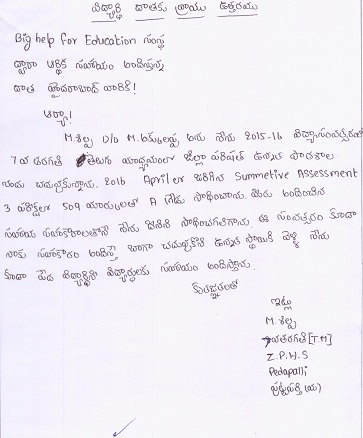 విద్యార్థి దాతకు వ్రాయు ఉత్తరము
Big help for Education సంస్థ
ద్వారా ఆర్థిక సహాయం అందిస్తున్న
దాత హైదరాబాద్ వారికి!
ఆర్యా!
M. శిల్ప D/o M. అను నేను 2015-16 విద్యాసంవత్సరంలో
7వ తరగతి తెలుగు మాధ్యమంలో జిల్లా పరిషత్ ఉన్నత పాఠశాల
నందు చదువుకున్నాను. 2016 April లో జరిగిన Summetive Assessment
3 పరీక్షలో 509 మార్కులతో A గ్రేడు సాధించాను. మీరు అందించిన
సహాయ సహకారాలతోనే నేను దీనిని సాధించగలిగాను. ఈ సంవత్సరం కూడా
నాకు సహకారం అందిస్తే బాగా చదువుకొని ఉన్నత స్థాయికి వెళ్లి నేను
కూడా పేద విద్యార్థిని విద్యార్థులకు సహాయం అందిస్తాను.
కృతజ్ఞతలతో
ఇట్లు
M. శిల్ప
7వ తరగతి [T.M]
Z.P.H.S
Pedapalli